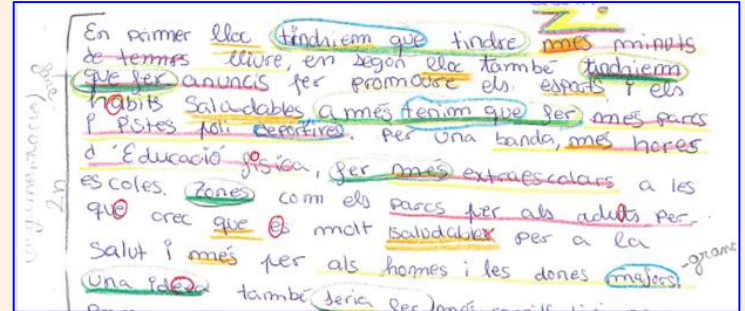 En primer lloc tindriem que tindre mes minuts
de termes lliure, en segon lloc també tindriem
que fer anuncis per promoure els esports i els
hàbits saludables a més tenim que fer mes parcs
i pistes poli deportives. per una banda, mes hores
d'Educació física, fer més extraescolars a les
escoles. Zones com els parcs per als adults per-
que crec que es molt saludables per a la
salut i més per als homes i les dones majors. -grans
una idea també seria fer més
2.n